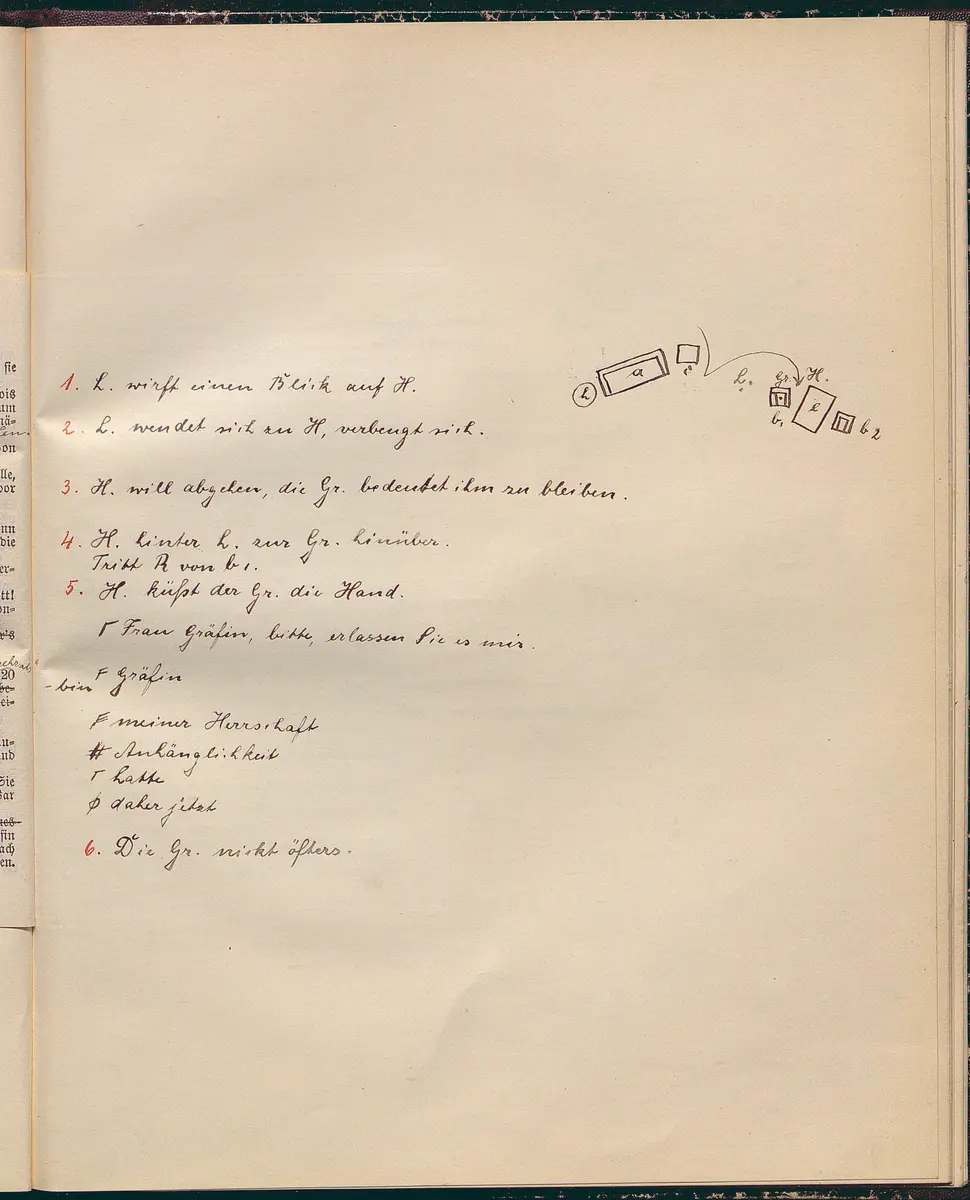 sie
ois
um
nä=
von
lle,
vor
nn
die
er=
ttl
on=
20
ei=
nu=
und
Sie
Bar
fin
ach
en.
1. L. wirft einen Blick auf H.
2. L. wendet sich zu H, verbeugt sich.
3. H. will abgehen, die Gr. bedeutet ihm zu bleiben.
4. H. hinter L. zur Gr. hinüber.
Tritt R von b1.
5. H. küßt der Gr. die Hand.
Γ Frau Gräfin, bitte, erlassen Sie es mir.
F Gräfin
- bin
meiner Herrschaft
# Anhänglichkeit
Γ hatte
φ daher jetzt
6. Die Gr. nickt öfters.
a
c
L.
Gr. H.
b1
e
b2